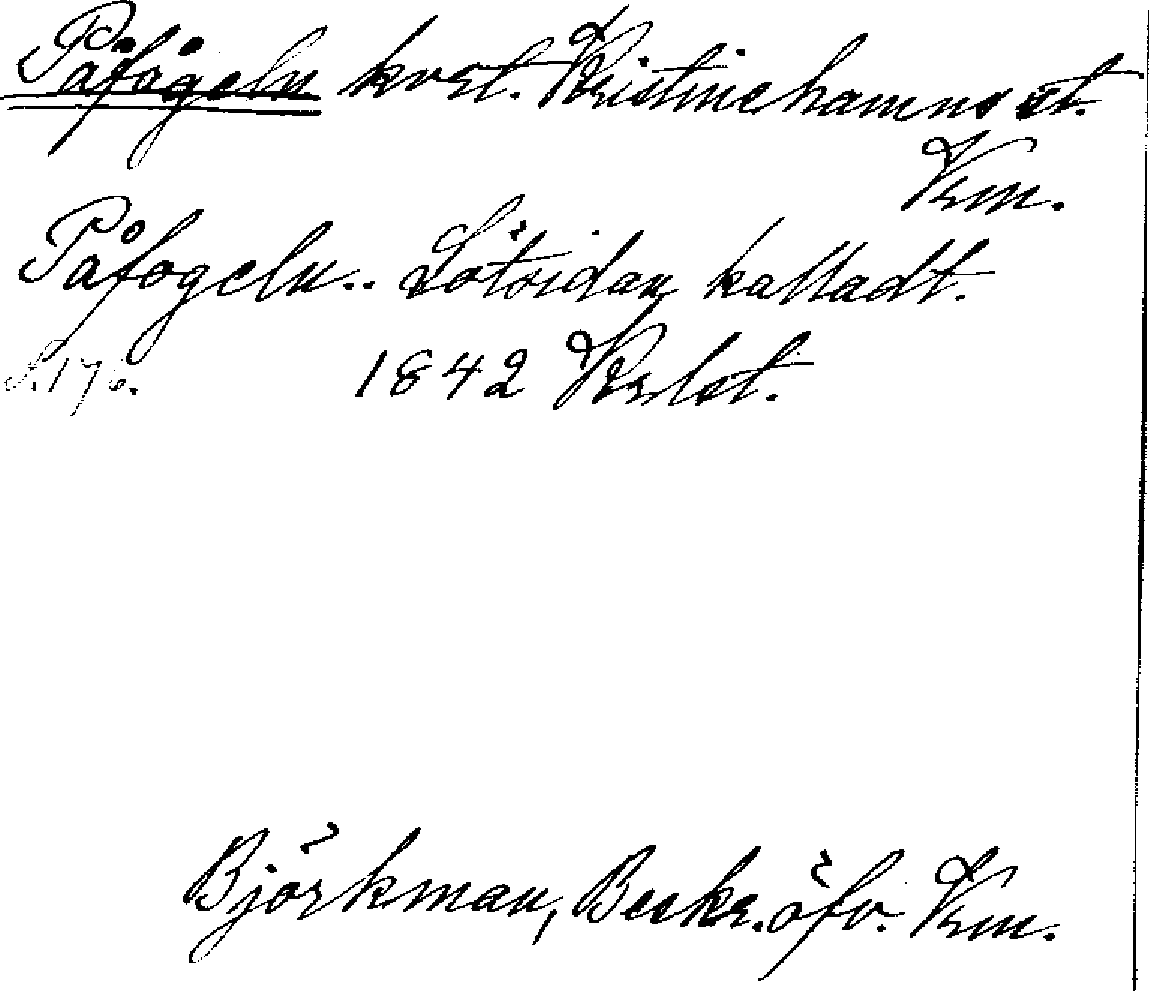 Påfågeln kvrt. Kristinehamns st.
Vrm.
Påfogeln.. Lötsidan kalladt.
S. 176. 1842 Krlst.
Björkman, Beskr. öfv. Vrm.